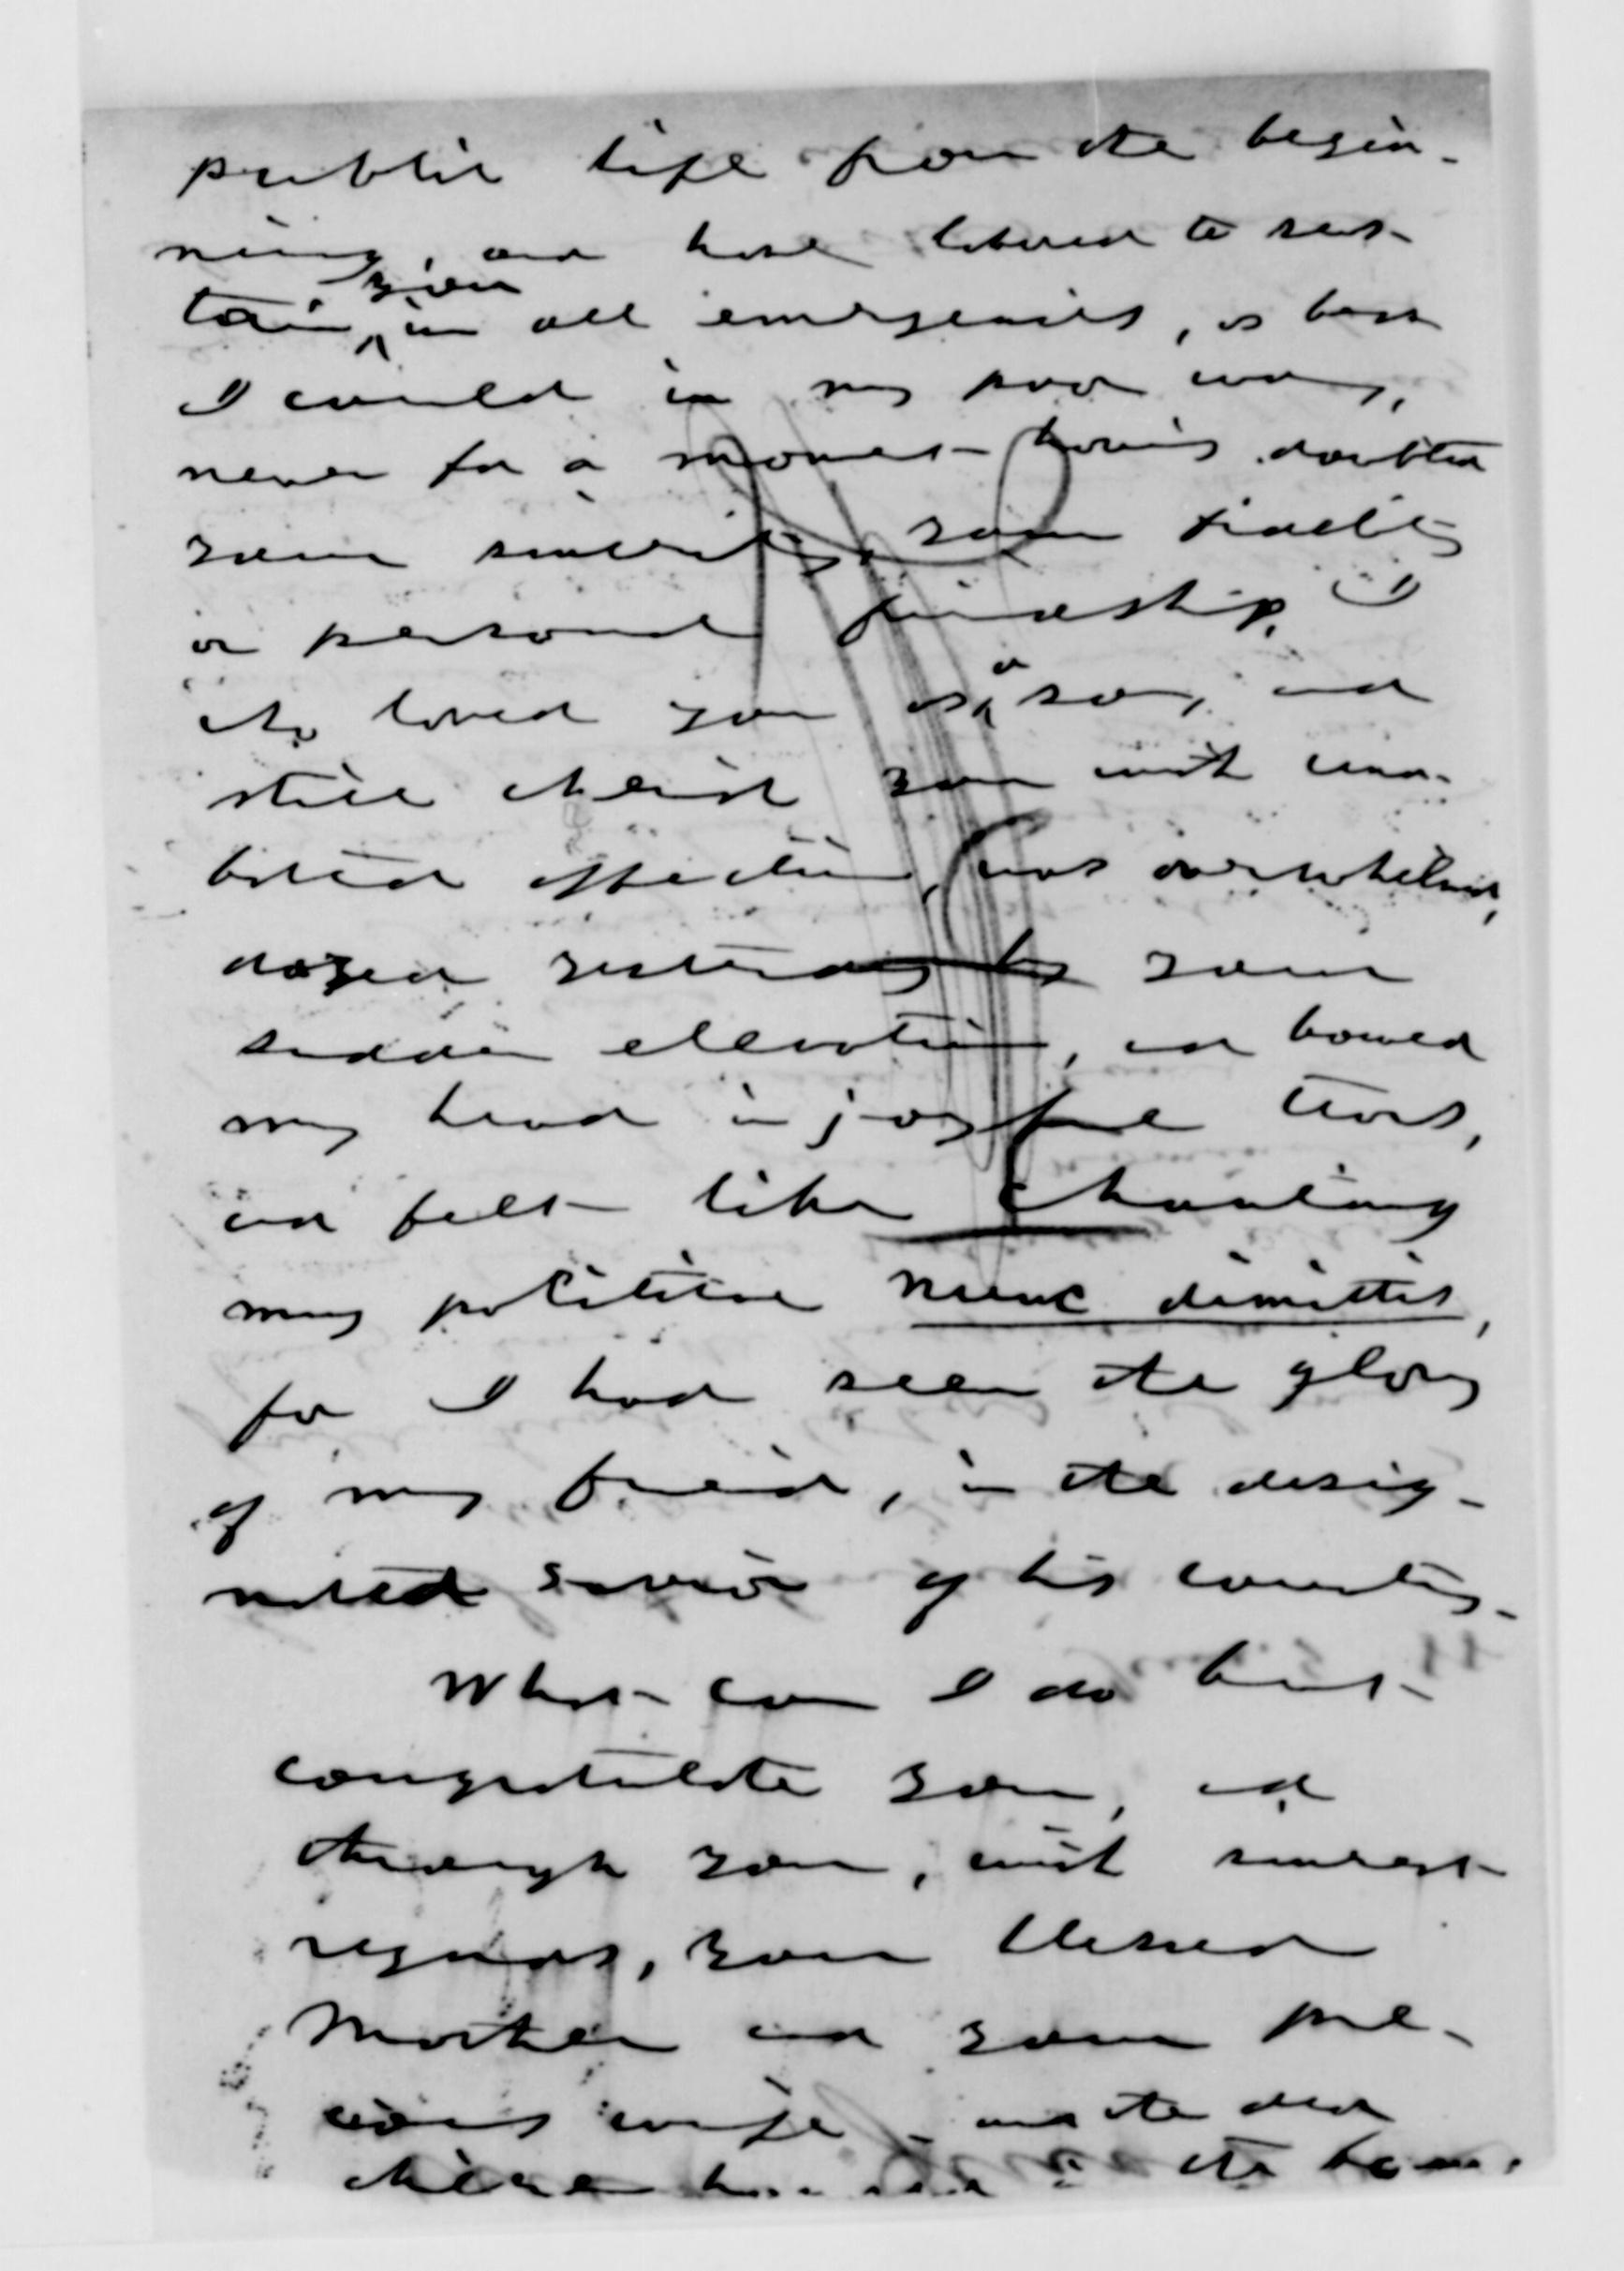 public life from the begin-
ning, and have labored to sus-
tain you in all emergencies, as best
I could in my poor way,
never for a moment having doubted
your sincerity, your fidelity
or personal friendship. I
who loved you as a son, and
still cherish you with una-
bated affection, was overwhelmed,
dazed yesterday by your
sudden elevation, and bowed
my head in joyful tears,
and felt like chanting
my political nunc dimittis,
for I had seen the glory
of my friend, in the desig-
nated savior of his country.
What can I do but
congratulate you, and
through you, with sincerest
regards, your blessed
Mother and your pre-
cious wife - and the dear
children in the